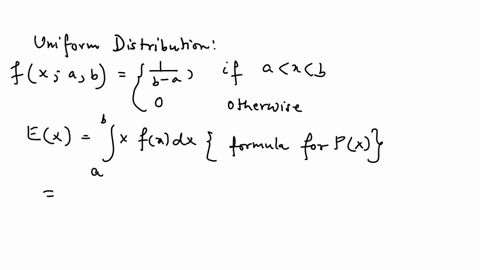 Uniform Distribution:
f(x; a, b) = { 1/(b-a), if a<x<b
0 otherwise
E(x) = ∫_a^b x f(x) dx { formula for P(x)}
=